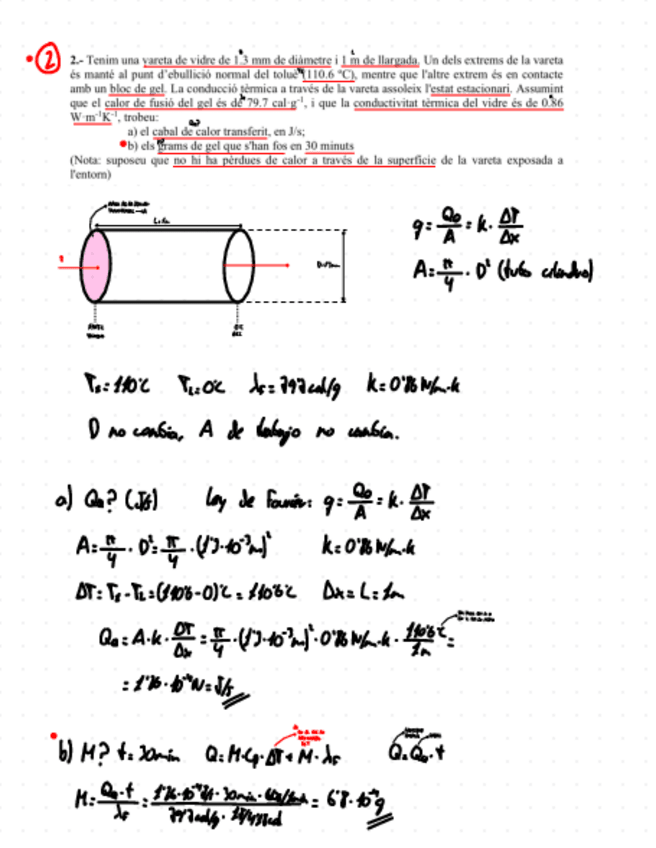 2
2.- Tenim una vareta de vidre de 1.3 mm de diàmetre i 1 m de llargada. Un dels extrems de la vareta
és manté al punt d'ebullició normal del toluè (110.6 °C), mentre que l'altre extrem és en contacte
amb un bloc de gel. La conducció tèrmica a través de la vareta assoleix l'estat estacionari. Assumint
que el calor de fusió del gel és de 79.7 cal·g⁻¹, i que la conductivitat tèrmica del vidre és de 0.86
W·m⁻¹K⁻¹, trobeu:
a) el cabal de calor transferit, en J/s;
b) els grams de gel que s'han fos en 30 minuts
(Nota: suposeu que no hi ha pèrdues de calor a través de la superfície de la vareta exposada a
l'entorn)
L=1m
q = Q₀/A = k · ΔT/Δx
A = π/4 · D² (tubo cilindro)
T_L=0°C λf = 79'7 cal/g k = 0'86 W/m·k
D no cambia, A de trabajo no cambia.
a) Q₀? (J/s) Ley de Fourier: q = Q₀/A = k · ΔT/Δx
A = π/4 · D² = π/4 · (1'3·10⁻³m)² k = 0'86 W/m·k
ΔT = Ts - T_L = (110'6-0)°C = 110'6°C Δx = L = 1m
Q₀ = A·k · ΔT/Δx = π/4 · (1'3·10⁻³m)² · 0'86 W/m·k · 110'6°C/1m =
= 1'26 · 10⁻⁴ W = J/s
b) M? t = 30min Q = M·Cp·ΔT + M·λf Q = Q₀·t
M = Q₀·t/λf = = 6'8·10⁻⁴g